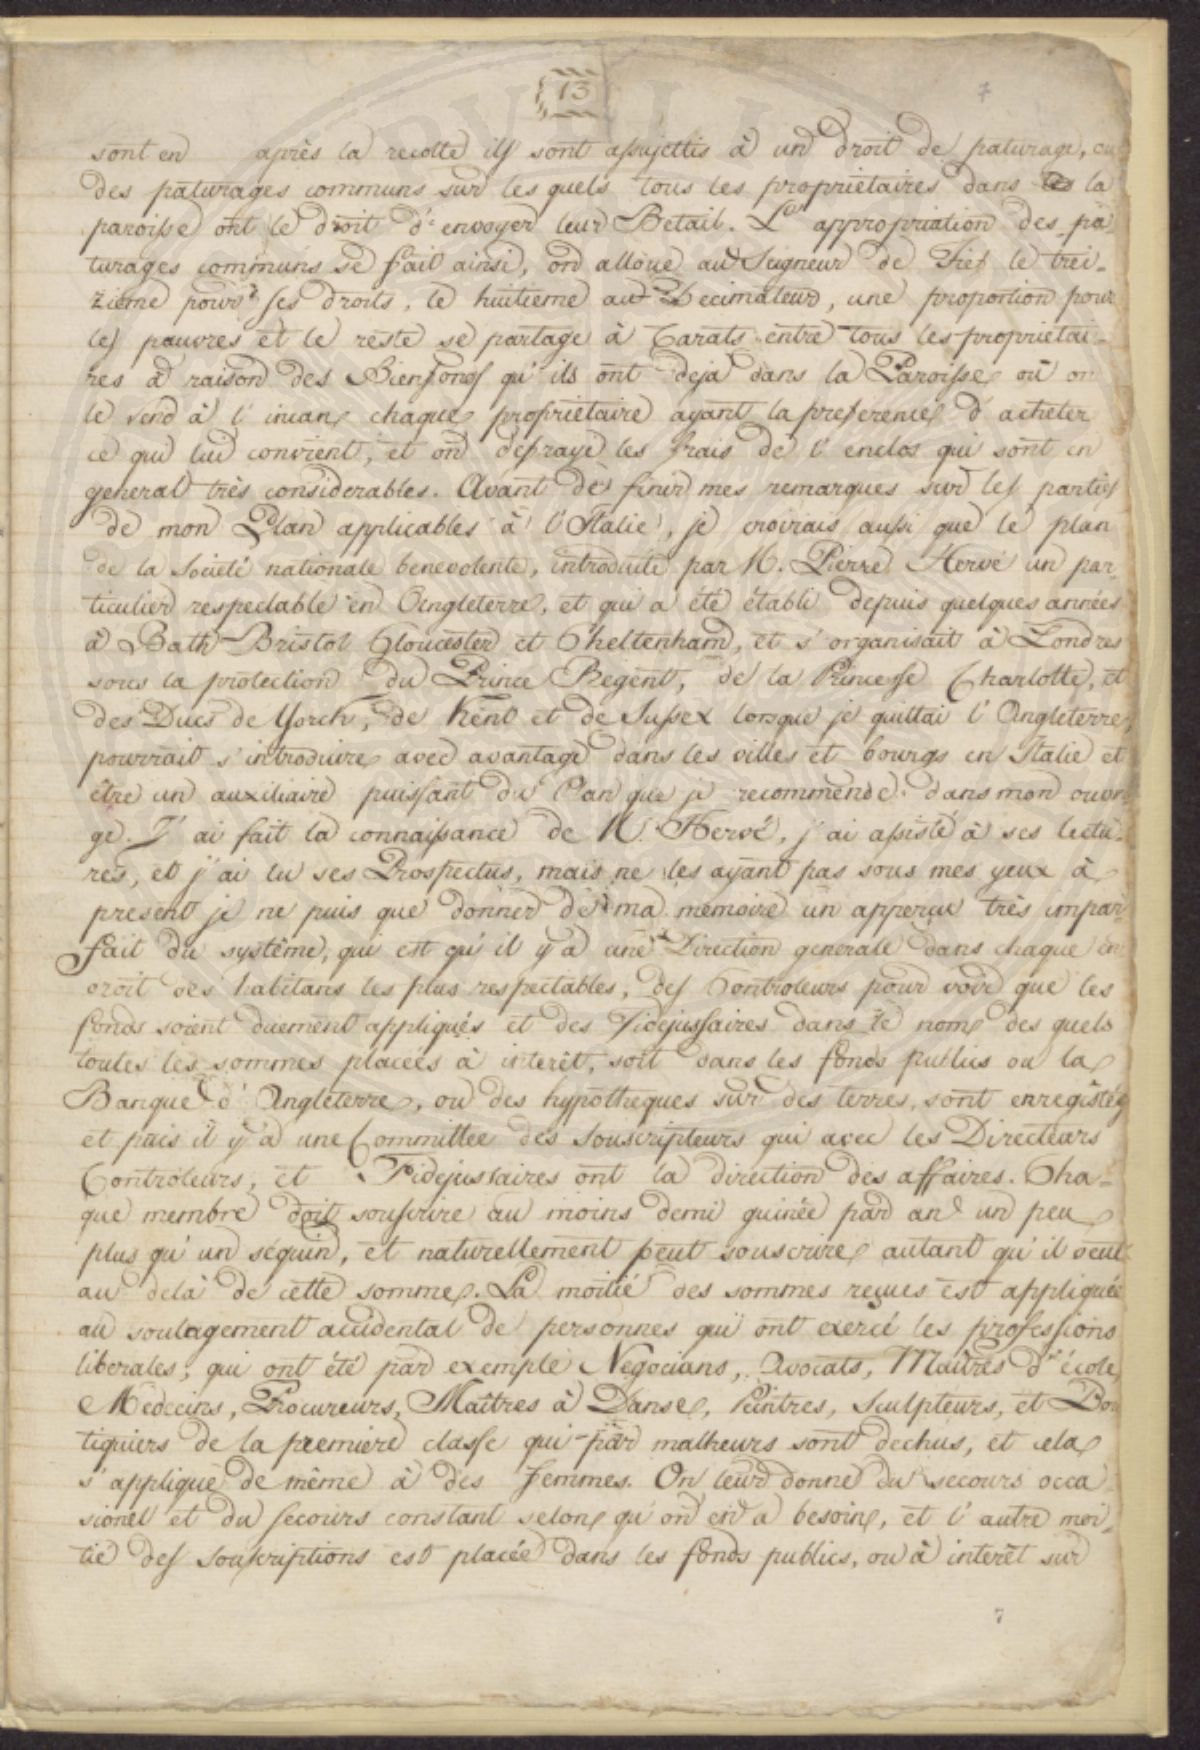 13
7
sont en après la recolte ils sont assujettis à un droit de paturage, ou
des paturages communs sur les quels tous les proprietaires dans la
paroisse ont le droit d'envoyer leur Betail. L'appropriation des pa-
turages communs se fait ainsi, on alloue au Seigneur de Fief le trei-
zieme pour ses droits, le huitieme au Decimateur, une proportion pour
les pauvres et le reste se partage à Carats entre tous les proprietai-
res à raison des Biensfonds qu'ils ont deja dans la Paroisse où on
le vend à l'incan, chaque proprietaire ayant la preference d'acheter
ce qui lui convient, et on defraye les frais de l'enclos qui sont en
general très considerables. Avant de finir mes remarques sur les parties
de mon Plan applicables à l'Italie, je croirais aussi que le plan
de la Societé nationale benevolente, introduite par M. Pierre Hervé un par-
ticulier respectable en Angleterre, et qui a été établi depuis quelques années
à Bath Bristol Gloucester et Cheltenham, et s'organisait à Londres
sous la protection du Prince Regent, de la Princesse Charlotte, et
des Ducs de Yorck, de Kent et de Sussex lorsque je quittai l'Angleterre,
pourrait s'introduire avec avantage dans les villes et bourgs en Italie et
être un auxiliaire puissant du Plan que je recommende dans mon ouvra-
ge. J'ai fait la connaissance de M. Hervé, j'ai assisté à ses lectu-
res, et j'ai lu ses Prospectus, mais ne les ayant pas sous mes yeux à
present je ne puis que donner de ma memoire un apperçu très impar-
fait du système, qui est qu'il y a une Direction generale dans chaque en-
droit des habitans les plus respectables, des Controleurs pour voir que les
fonds soient duement appliqués et des Fidejussaires dans le nom des quels
toutes les sommes placées à interêt, soit dans les fonds publics ou la
Banque d'Angleterre, ou des hypotheques sur des terres, sont enregistés
et puis il y a une Committee des Souscripteurs qui avec les Directeurs
Controleurs, et Fidejussaires ont la direction des affaires. Cha-
que membre doit souscrire au moins demi guinée par an un peu
plus qu'un séquin, et naturellement peut souscrire autant qu'il veut
au delà de cette somme. La moitié des sommes reçues est appliquée
au soulagement accidental de personnes qui ont exercé les professions
liberales, qui ont été par exemple Negocians, Avocats, Maîtres d'école,
Medecins, Procureurs, Maîtres à Danse, Peintres, Sculpteurs, et Bou-
tiquiers de la premiere classe qui par malheurs sont dechus, et cela
s'applique de même à des femmes. On leur donne du secours occa-
sionel et du secours constant selon qu'on en a besoin, et l'autre moi-
tié des souscriptions est placée dans les fonds publics, ou à interêt sur
7